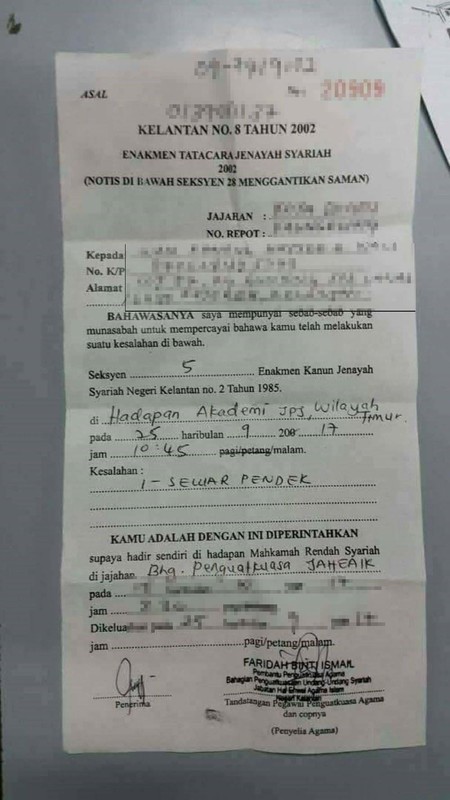 ASAL
No. 20909
KELANTAN NO. 8 TAHUN 2002
ENAKMEN TATACARA JENAYAH SYARIAH
2002
(NOTIS DI BAWAH SEKSYEN 28 MENGGANTIKAN SAMAN)
JAJAHAN :
NO. REPOT :
Kepada
No. K/P
Alamat
BAHAWASANYA saya mempunyai sebab-sebab yang
munasabah untuk mempercayai bahawa kamu telah melakukan
suatu kesalahan di bawah.
Seksyen 5 Enakmen Kanun Jenayah
Syariah Negeri Kelantan no. 2 Tahun 1985.
di Hadapan Akademi JPJ, Wilayah Timur.
pada 25 haribulan 9 200 17
jam 10:45 pagi/petang/malam.
Kesalahan :
1 - SEWAR PENDEK
KAMU ADALAH DENGAN INI DIPERINTAHKAN
supaya hadir sendiri di hadapan Mahkamah Rendah Syariah
di jajahan Bhg. Penguatkuasa JAHEAIK
pada
jam
Dikelua
jam pagi/petang/malam.
FARIDAH BINTI ISMAIL
Pembantu Penguatkuasa Agama
Bahagian Penguatkuasaan Undang-Undang Syariah
Jabatan Hal Ehwal Agama Islam
Negeri Kelantan
Penerima
Tandatangan Pegawai Penguatkuasa Agama
dan copnya
(Penyelia Agama)